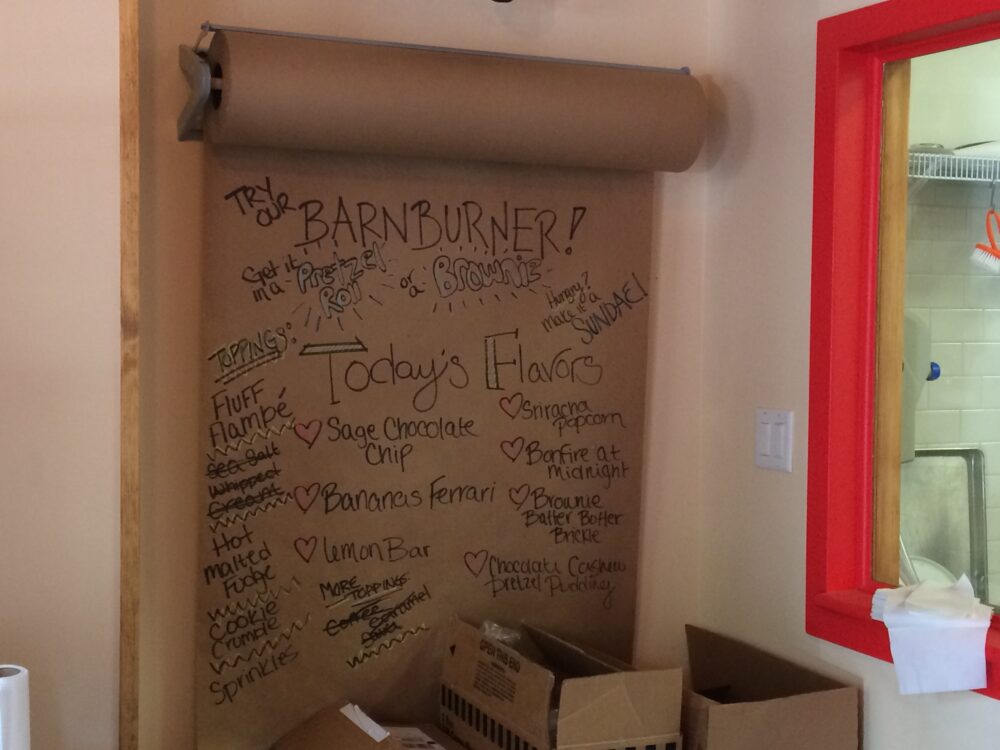 TRY
OUR
BARNBURNER!
Get it
in a
Pretzel
Roll
or
a
BROWNIE
Hungry?
make it a
SUNDAE!
TOPPINGS:
FLUFF
Flambé
Sea Salt
Whipped
Cream
Hot
malted
Fudge
Cookie
Crumble
Sprinkles
Today's Flavors
Sage Chocolate
Chip
Bananas Ferrari
Lemon Bar
Sriracha
Popcorn
Bonfire at
midnight
Brownie
Batter Butter
Brickle
Chocolate Cashew
pretzel Pudding
MORE
TOPPINGS
Coffee Caramel
OPEN THIS END